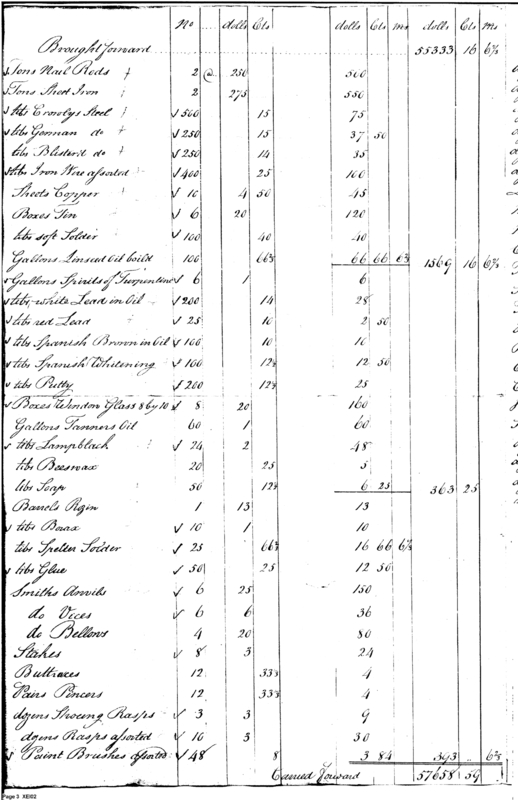 No dolls Cts dolls Cts ms dolls Cts ms
Brought forward 55333 16 6⅔
Tons Nail Rods 2 @ 250 500
Tons Sheet Iron 2 275 550
lbs Crowlys Steel 500 15 75
lbs German do 250 15 37 50
lbs Blister'd do 250 14 35
lbs Iron Wire assorted 400 25 100
Sheets Copper 10 4 50 45
Boxes Tin 6 20 120
lbs soft Solder 100 40 40
Gallons Linseed Oil boild 100 66⅔ 66 66 6⅔ 1569 16 6⅔
Gallons Spirits of Turpentine 6 1 6
lbs white Lead in Oil 200 14 28
lbs red Lead 25 10 2 50
lbs Spanish Brown in Oil 100 10 10
lbs Spanish Whitening 100 12½ 12 50
lbs Putty 200 12½ 25
Boxes Window Glass 8 by 10 8 20 160
Gallons Tanners Oil 60 1 60
lbs Lampblack 24 2 48
lbs Beeswax 20 25 5
lbs Soap 50 12½ 6 25 363 25
Barrels Rosin 1 13 13
lbs Borax 10 1 10
lbs Spelter Solder 25 66⅔ 16 66 6⅔
lbs Glue 50 25 12 50
Smiths Anvils 6 25 150
do Vices 6 6 36
do Bellows 4 20 80
Stakes 8 3 24
Buttrices 12 33⅓ 4
Pairs Pincers 12 33⅓ 4
dozens Shoeing Rasps 3 3 9
dozens Rasps assorted 10 3 30
Paint Brushes assorted 48 8 3 84 393 6⅔
Carried forward 57658 59
Page 3 XEI02